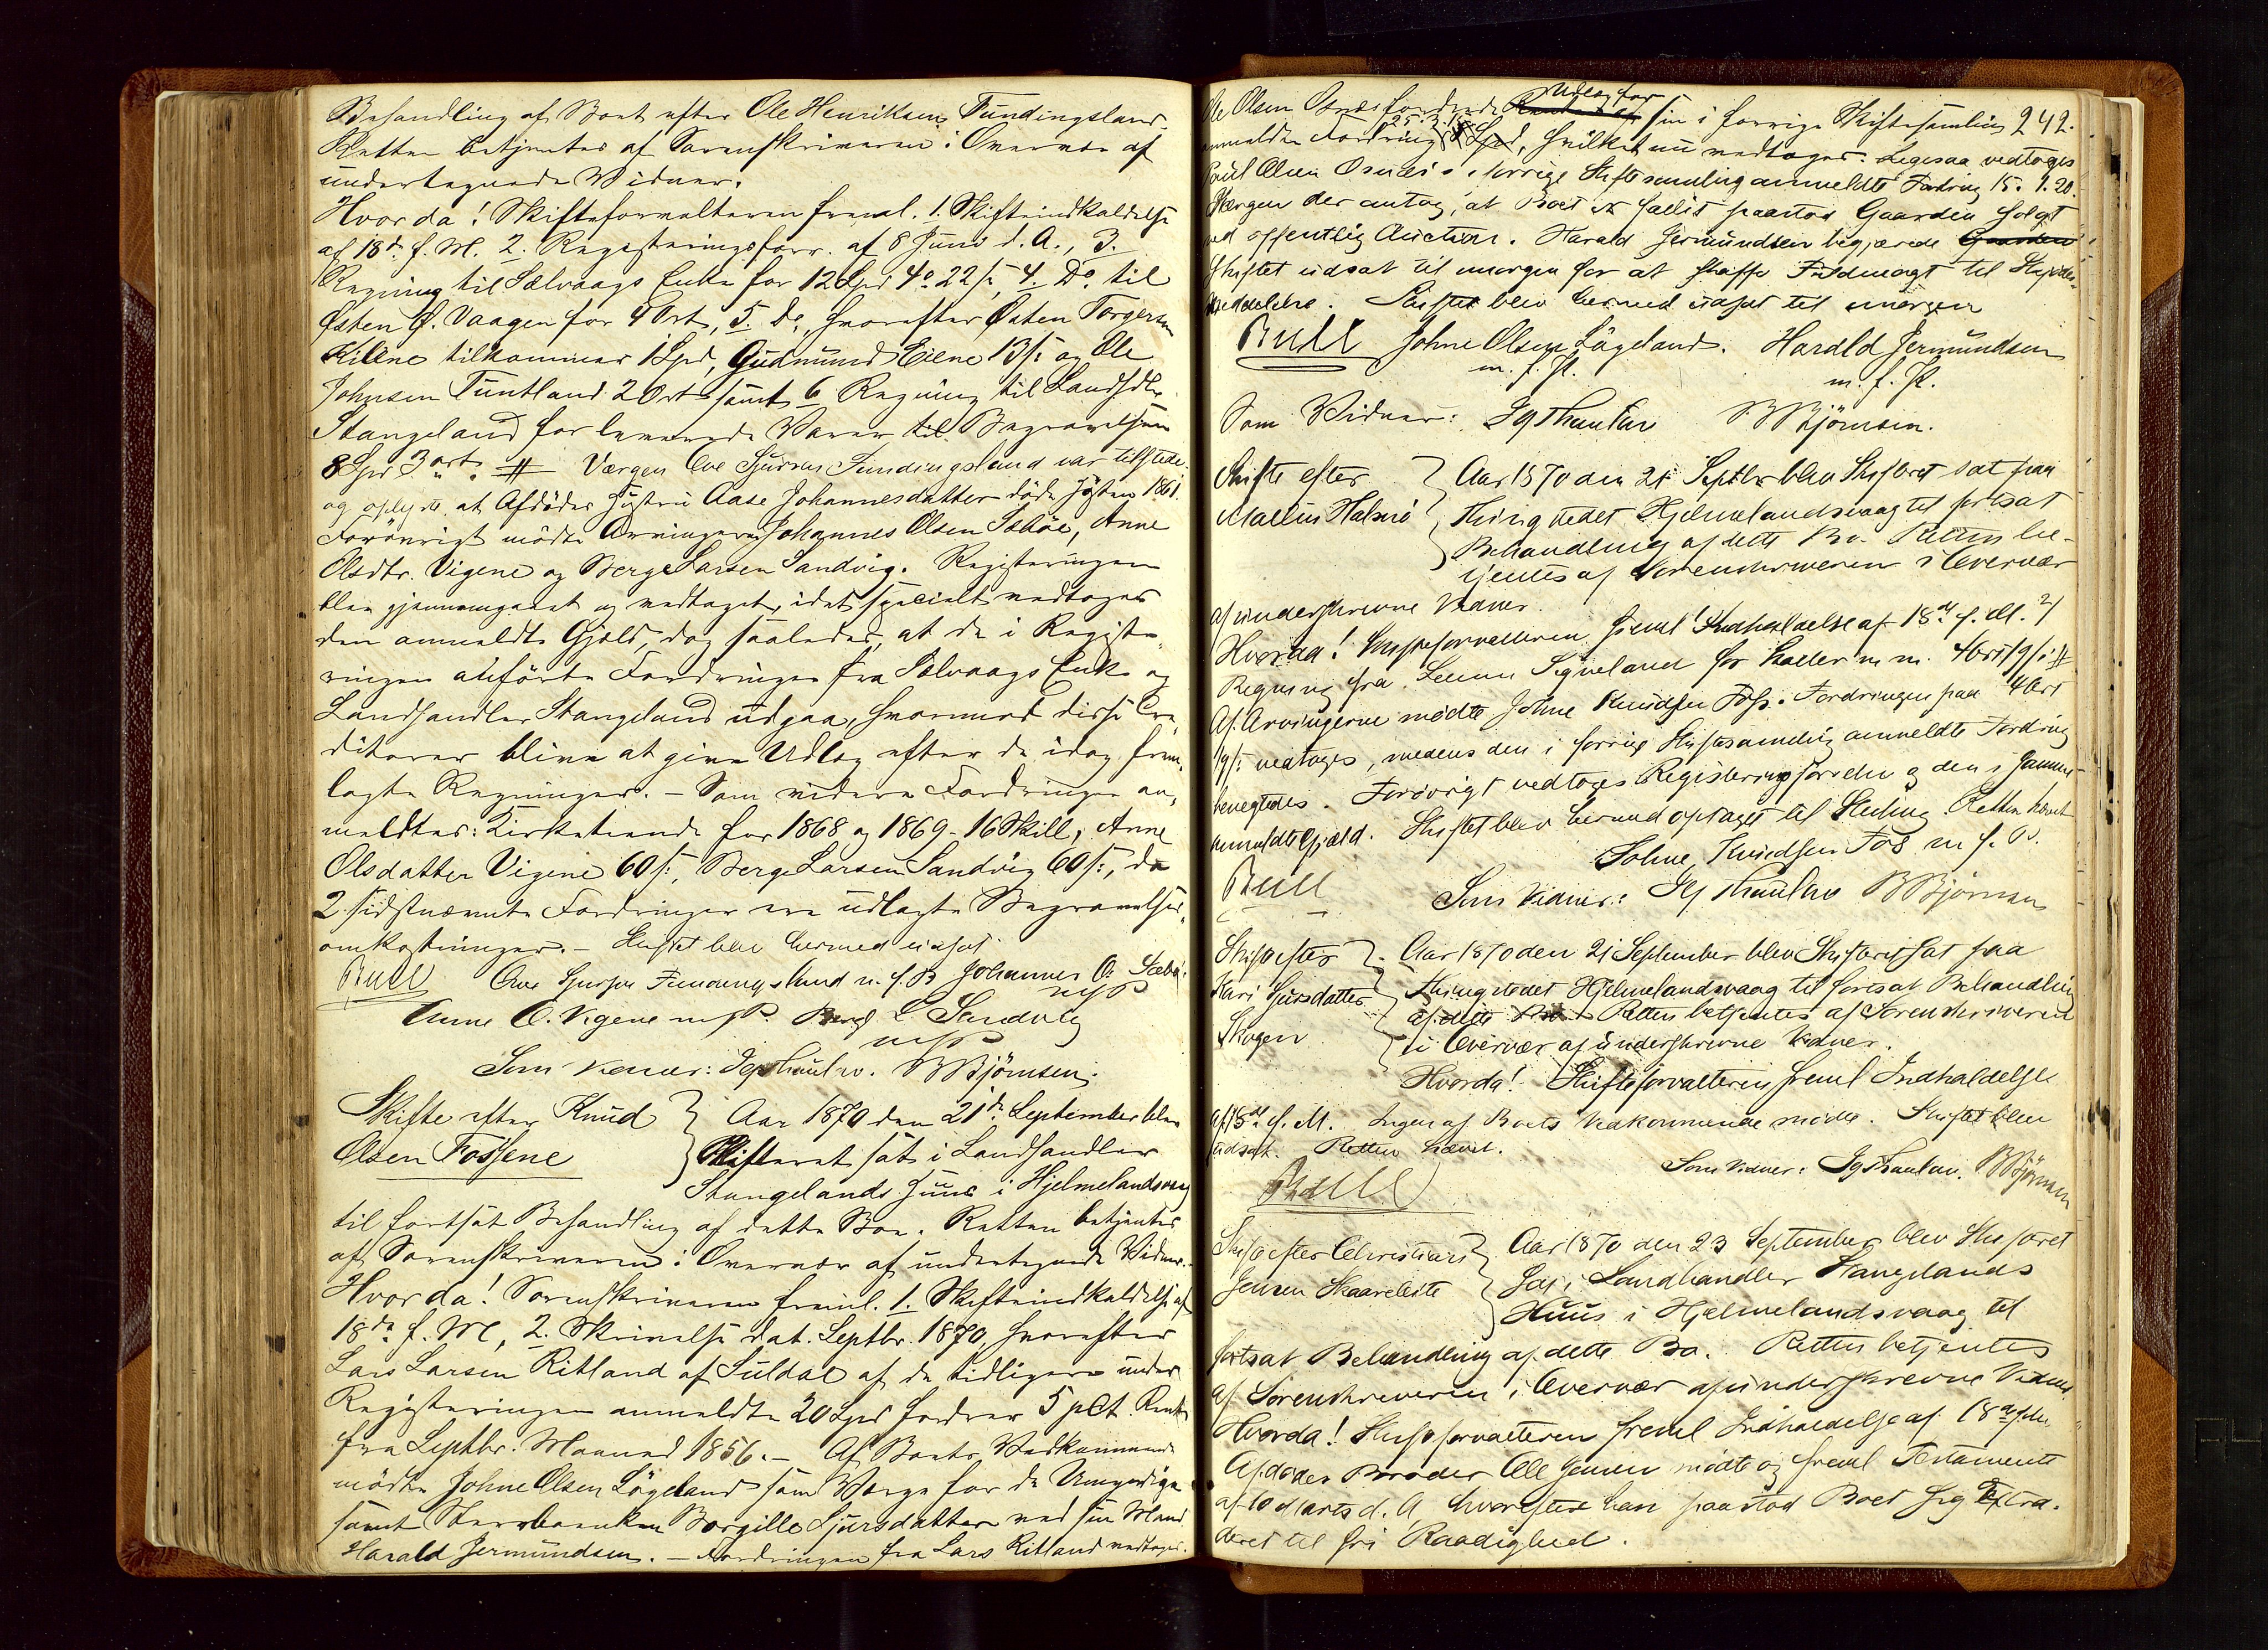 Behandling af Boet efter Ole Henriksen Fundingsland.
Retten betjentes af Sorenskriveren i Overvær af
undertegnede Vidner.
Hvorda! Skifteforvalteren freml. 1. Skifteindkaldelse
af 18de f. M. 2. Registeringsforr. af 8 Juni d. A., 3.
Regning til Sælvaags Enke for 12 Spd 4o 22 s, 4. Do til
Østen Ø. Vaagen for 4 Ort, 5. Do, hvorefter Østen Torgersen
Kilene tilkommer 1 Spd, Gudmund Eiene 13 s: og Ole
Johnsen Tuntland 2 Ort samt 6 Regning til Landhdlr
Stangeland for leverede Varer til Begravelsen
8 Spd 3 ort " # Værgen Ove Sjursen Fundingsland var tilstede
og oplyste, at Afdødes Hustru Aase Johannesdatter døde Høsten 1861.
Forøvrigt mødte Arvingerne Johannes Olsen Sæbøe, Anne
Olsdtr. Vigene og Berge Larsen Sandvig. Registeringen
blev gjennemgaaet og vedtaget, idet specielt vedtoges
den anmeldte Gjæld, dog saaledes, at de i Registe-
ringen anførte Fordringer fra Sælvaags Enke og
Landhandler Stangeland udgaa, hvorimod disse Cre-
ditorer blive at give Udlæg efter de idag frem-
lagte Regninger. – Som videre Fordringer an-
meldtes: Kirketiende for 1868 og 1869 - 16 Skill, Anne
Olsdatter Vigene 60 s:, Berge Larsen Sandvig 60 s:, de
2 sidstnævnte Fordringer ere udlagte Begravelses-
omkostninger. – Skiftet blev hermed udsat.
Bull Ove Sjursen Fundingsland m. f. P. Johannes O. Sæbø
m f P
Anne O. Vigene m f P. Berge L. Sandvig
m f P
Som Vidner: Jg Thaulow. B Bjørnsen.
Skifte efter Knud } Aar 1870 den 21de September blev
Olsen Fossene } Skifteret sat i Landhandler
Stangelands Huus i Hjelmelandsvaag
til fortsat Behandling af dette Boe. Retten betjentes
af Sorenskriveren i Overvær af undertegnede Vidner.
Hvorda! Sorenskriveren freml. 1. Skifteindkaldelse af
18de f. M, 2. Skrivelse dat. Septbr. 1870, hvorefter
Lars Larsen Ritland af Suldal af de tidligere under
Registeringen anmeldte 20 Spd fordrer 5 pCt. Rente
fra Septbr. Maaned 1856. – Af Boets Vedkommende
mødte Johne Olsen Løgeland som Værge for de Umyndige
samt Sterboenken Borgille Sjursdatter ved sin Mand
Harald Jermundsen. – Fordringen fra Lars Ritland vedtoges.
242.
Ole Olsen Osnes fordrede Udlæg for sin i forrige Skiftesamling
anmeldte Fordring Spd, hvilket nu vedtoges. Ligesaa vedtoges
Poul Olsen Osnes's i forrige Skiftesamling anmeldte Fordring 15. 1. 20.
Værgen der antog, at Boet er fallit paastod Gaarden solgt
ved offentlig Auction. Harald Jermundsen begjærede Gaarden
Skiftet udsat til imorgen for at skaffe Fuldmagt til Skjøde-
meddelelse. Skiftet blev hermed udsat til imorgen
Bull Johne Olsen Løgeland. Harald Jermundsen
m. f. P. m. f. P.
Som Vidner: Jg Thaulow B Bjørnsen.
Skifte efter } Aar 1870 den 21 Septbr blev Skifteret sat paa
Malene Halsnø } Thingstedet Hjelmelandsvaag til fortsat
Behandling af dette Bo. Retten be-
tjentes af Sorenskriveren i Overvær
af underskrevne Vidner.
Hvorda! Skifteforvalteren freml Indkaldelse af 18de f. M. 2/
Regning fra Signeland for m m. 4 Ort 19 s: #
Af Arvingerne mødte Johne Knudsen Foss. Fordringen paa 4 Ort
19 s: vedtoges, medens den i forrige Skiftesamling anmeldte Fordring
benegtedes. Forøvrigt vedtoges Registeringsforretn. og den i samme
anmeldte Gjæld. Skiftet blev hermed optaget til Slutning. Retten hævet
Johne Knudsen Fos m f. P.
Bull
Som Vidner: Jg Thaulow B Bjørnsen
Skifte efter } Aar 1870 den 21 September blev Skifteret sat paa
Kari Sjursdatter } Thingstedet Hjelmelandsvaag til fortsat Behandling
Skogen } af dette Bo. Retten betjentes af Sorenskriveren
i Overvær af underskrevne Vidner.
Hvorda! Skifteforvalteren freml Indkaldelse
af 18de f. M. Ingen af Boets Vedkommende mødte. Skiftet blev
udsat. Retten hævet.
Som Vidner: Jg Thaulow. B Bjørnsen
Bull
Skifte efter Christian } Aar 1870 den 23 September blev Skifteret
Jensen Skaareleite } sat i Landhandler Stangelands
Huus i Hjelmelandsvaag til
fortsat Behandling af dette Bo. Retten betjentes
af Sorenskriveren i Overvær af underskrevne Vidner
Hvorda! Skifteforvalteren freml Indkaldelse af 18de f. M.
Afdødes Broder Ole Jensen mødte og freml Testamente
af 10 Marts d. A. hvorefter han paastod Boet sig Extra-
deret til fri Raadighed.